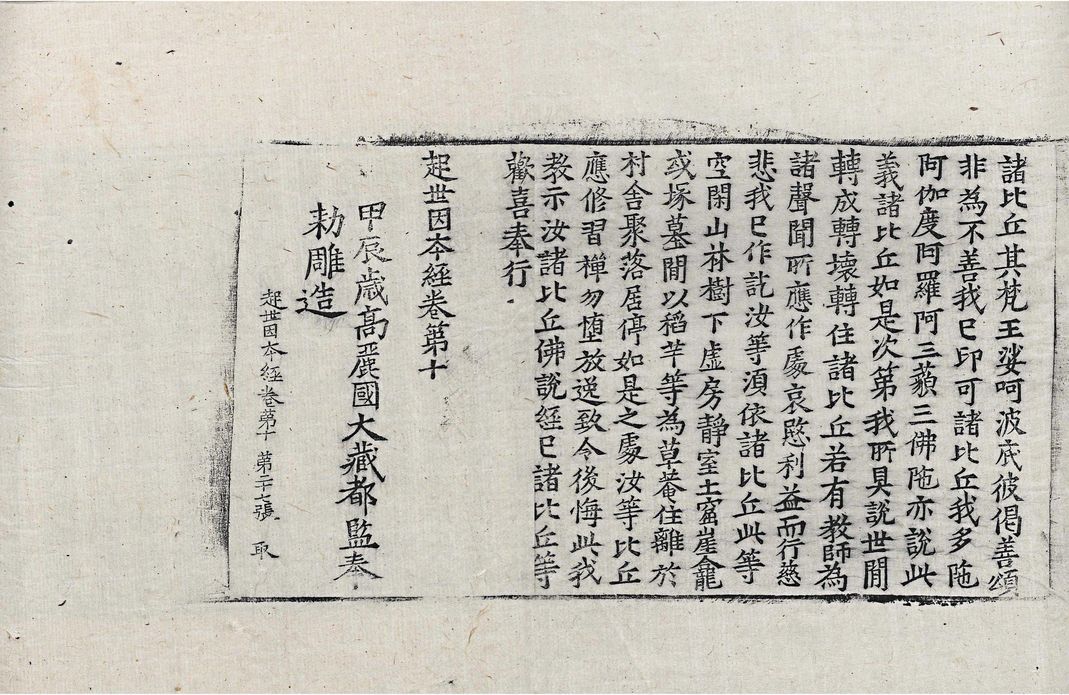 諸比丘其梵王娑呵波底彼偈善頌
非為不善我已印可諸比丘我多陁
阿伽度阿羅呵三藐三佛陁亦說此
義諸比丘如是次第我所具說世閒
轉成轉壞轉住諸比丘若有教師為
諸聲聞所應作處哀愍利益而行慈
悲我已作訖汝等須依諸比丘此等
空閑山林樹下虛房靜室土窟崖龕
或塚墓閒以稻芉等為草菴住離於
村舍聚落居停如是之處汝等比丘
應修習禪勿墮放逸致令後悔此我
教示汝諸比丘佛說經已諸比丘等
歡喜奉行
起世因本經卷第十
甲辰歲高麗國大藏都監奉
勑雕造
起世因本經卷第十 第二十七張 取